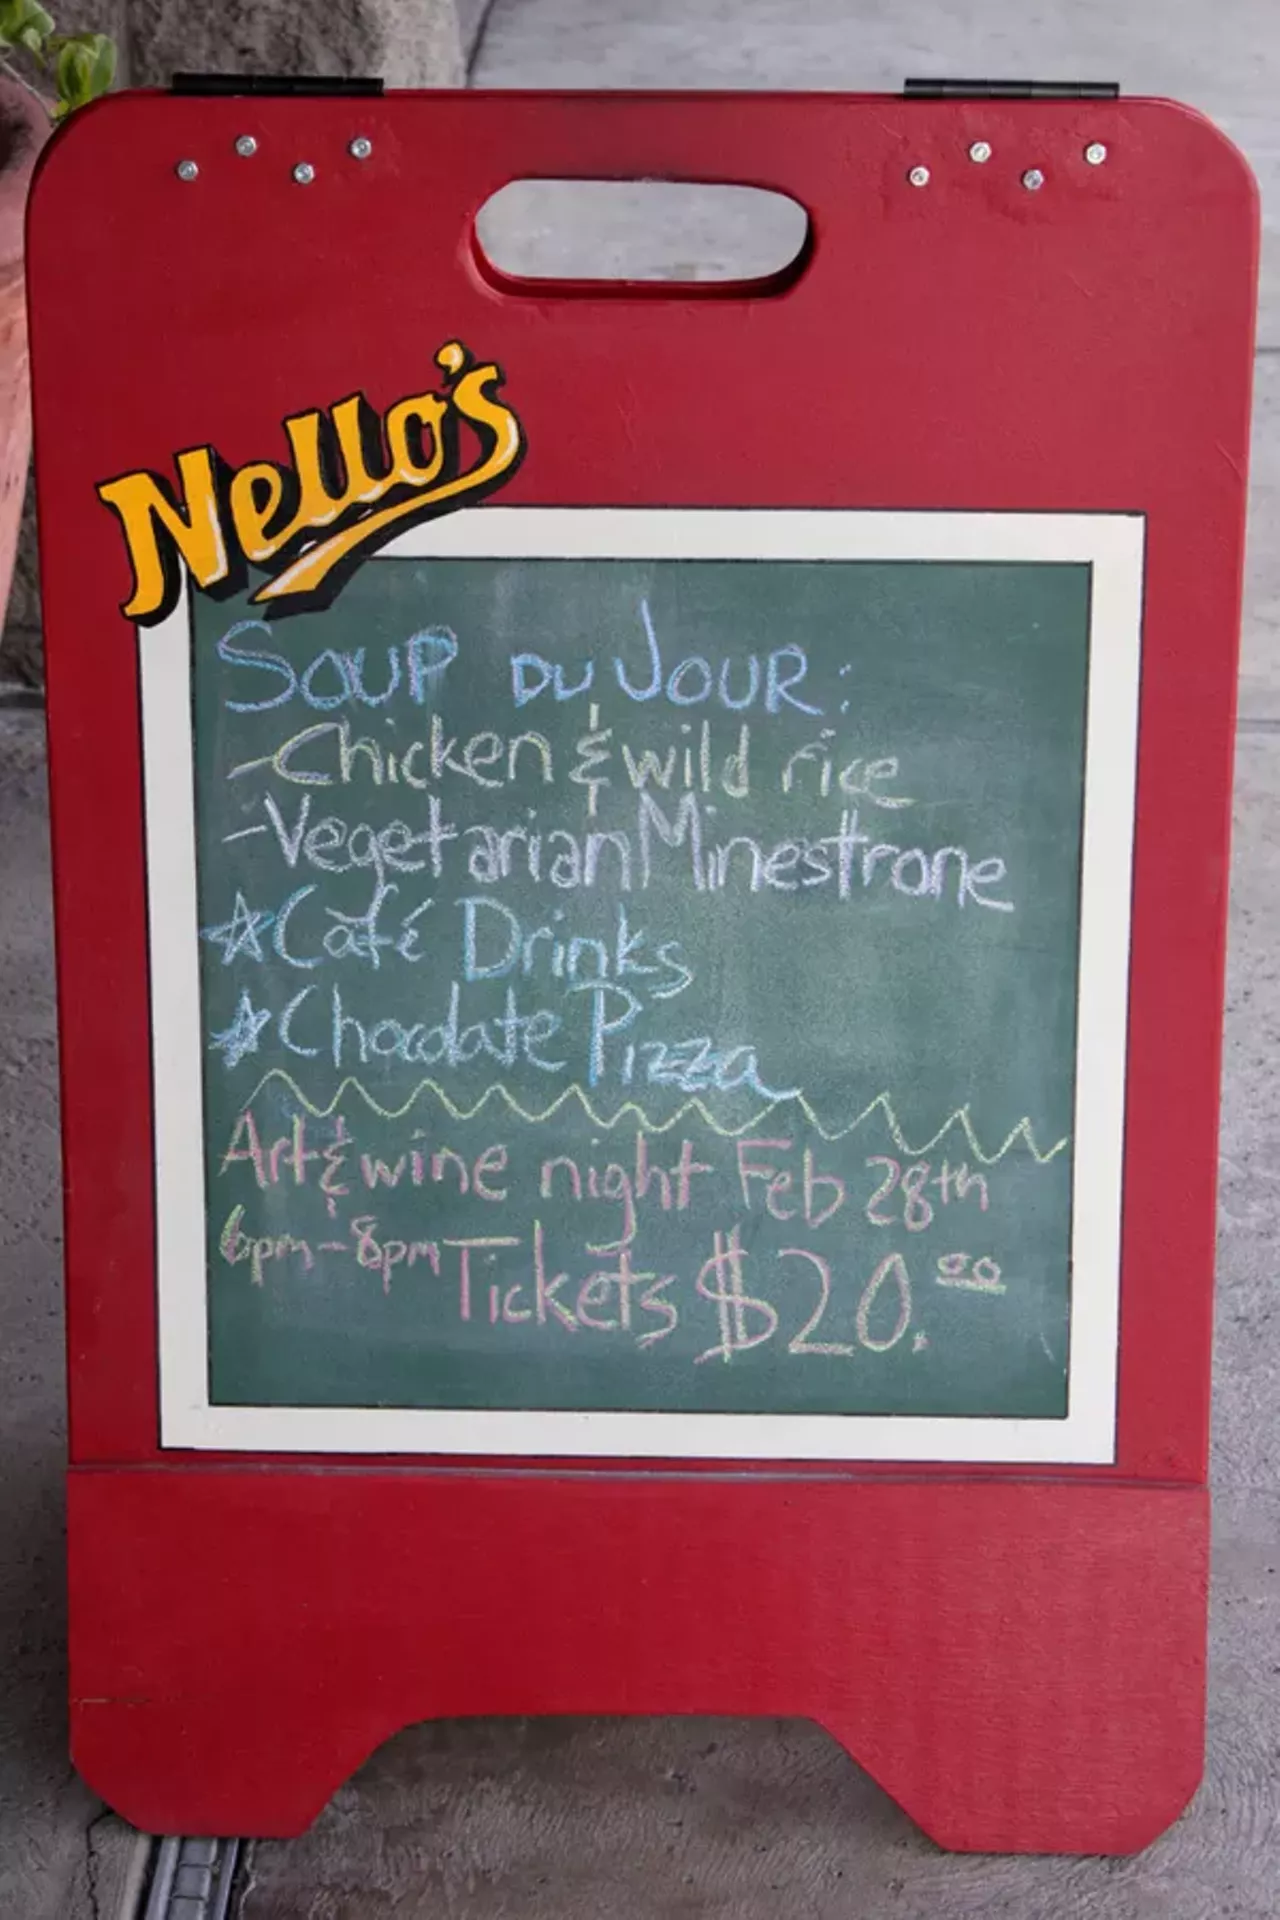 Nello's
SOUP DU JOUR:
-Chicken & wild rice
-Vegetarian Minestrone
☆Café Drinks
☆Chocolate Pizza
Art & wine night Feb 28th
6pm-8pm Tickets $20.00